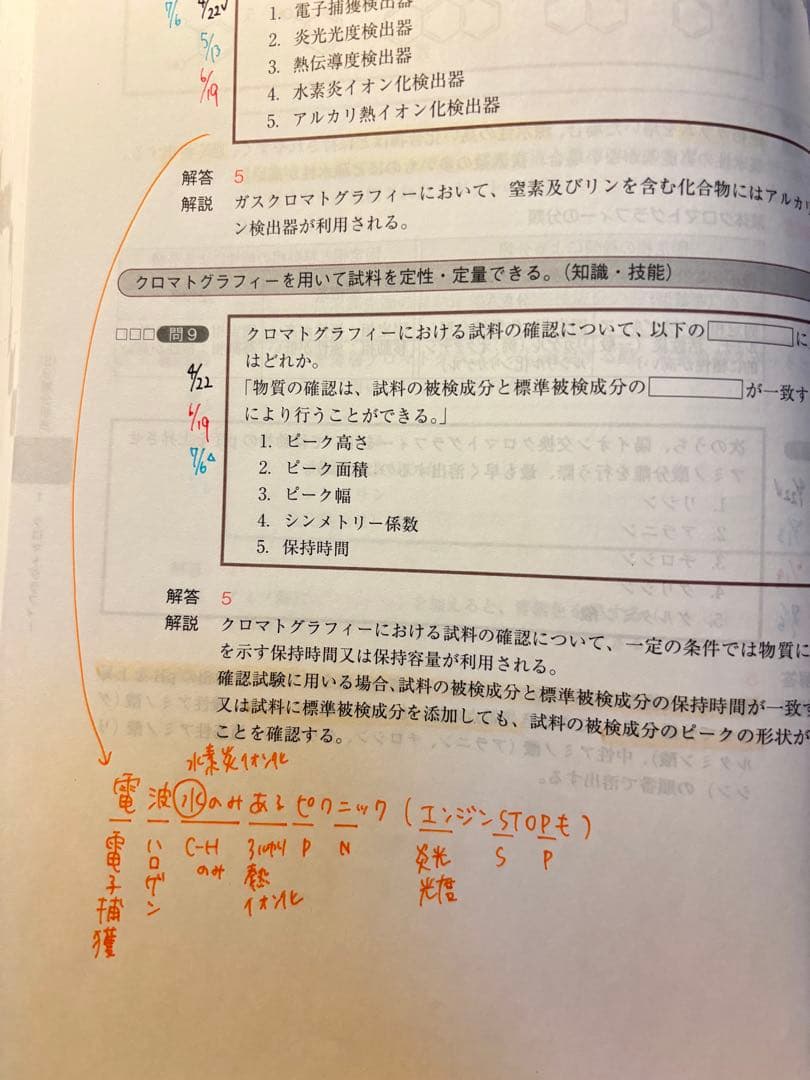 7/6 4/22
5/13
6/19
1. 電子捕獲検出器
2. 炎光光度検出器
3. 熱伝導度検出器
4. 水素炎イオン化検出器
5. アルカリ熱イオン化検出器
解答 5
解説 ガスクロマトグラフィーにおいて、窒素及びリンを含む化合物にはアルカリ
ン検出器が利用される。
クロマトグラフィーを用いて試料を定性・定量できる。(知識・技能)
□□□ 問9 クロマトグラフィーにおける試料の確認について、以下の に
はどれか。
4/22
「物質の確認は、試料の被検成分と標準被検成分の が一致す
により行うことができる。」
6/19
7/6△
1. ピーク高さ
2. ピーク面積
3. ピーク幅
4. シンメトリー係数
5. 保持時間
解答 5
解説 クロマトグラフィーにおける試料の確認について、一定の条件では物質に
を示す保持時間又は保持容量が利用される。
確認試験に用いる場合、試料の被検成分と標準被検成分の保持時間が一致す
又は試料に標準被検成分を添加しても、試料の被検成分のピークの形状が
ことを確認する。
水素炎イオン化
電波水のみあるピクニック(エンジンSTOPも)
電子捕獲 ハロゲン C-Hのみ アルカリ熱イオン化 P N 炎光光度 S P